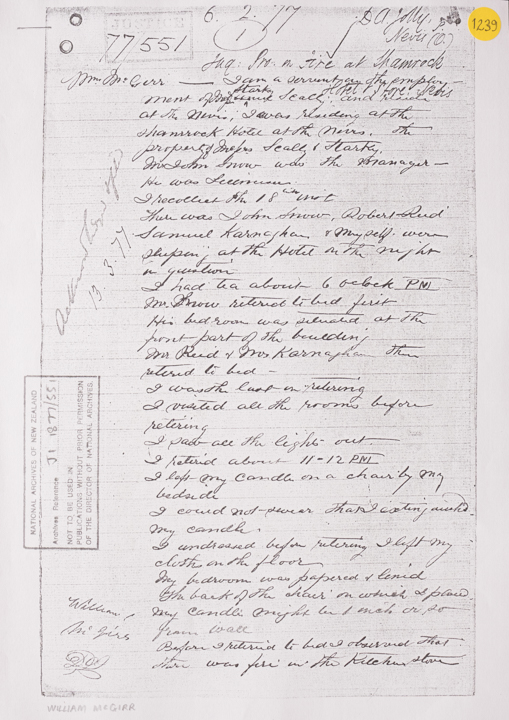 JUSTICE
6.2.77
77/551
1
D A Jolly,
Nevis (O)
1239
Inq: Pro. in Fire at Shamrock
Hotel & Store Nevis
Wm McGirr — I am a servant in the employ-
ment of Starky Scally and reside
at the Nevis, I was residing at the
Shamrock Hotel at the Nevis. The
property of Messrs Scally & Starky.
Mr John Snow was the manager —
He was Licensee.
I recollect the 18th inst
There was John Snow, Robert Reid
Samuel Karnaghan & myself were
sleeping at the Hotel on the night
in question
I had tea about 6 oclock PM
Mr Snow retired to bed first
His bedroom was situated at the
front part of the building
Mr Reid & Mr Karnaghan then
retired to bed —
I was the last in retiring
I visited all the rooms before
retiring
I saw all the lights out.
I retired about 11-12 PM
I left my candle on a chair by my
bedside
I could not swear that I extinguished
my candle.
I undressed before retiring I left my
cloths on the floor
My bedroom was papered & lined
The back of the chair on which I placed
my candle might be 1 inch or so
from wall
Before I retired to bed I observed that
there was fire in the Kitchen stove
13.3.77
NATIONAL ARCHIVES OF NEW ZEALAND
Archives Reference J1 1877/551
NOT TO BE USED IN
PUBLICATIONS WITHOUT PRIOR PERMISSION
OF THE DIRECTOR OF NATIONAL ARCHIVES.
William
McGirr
WILLIAM McGIRR